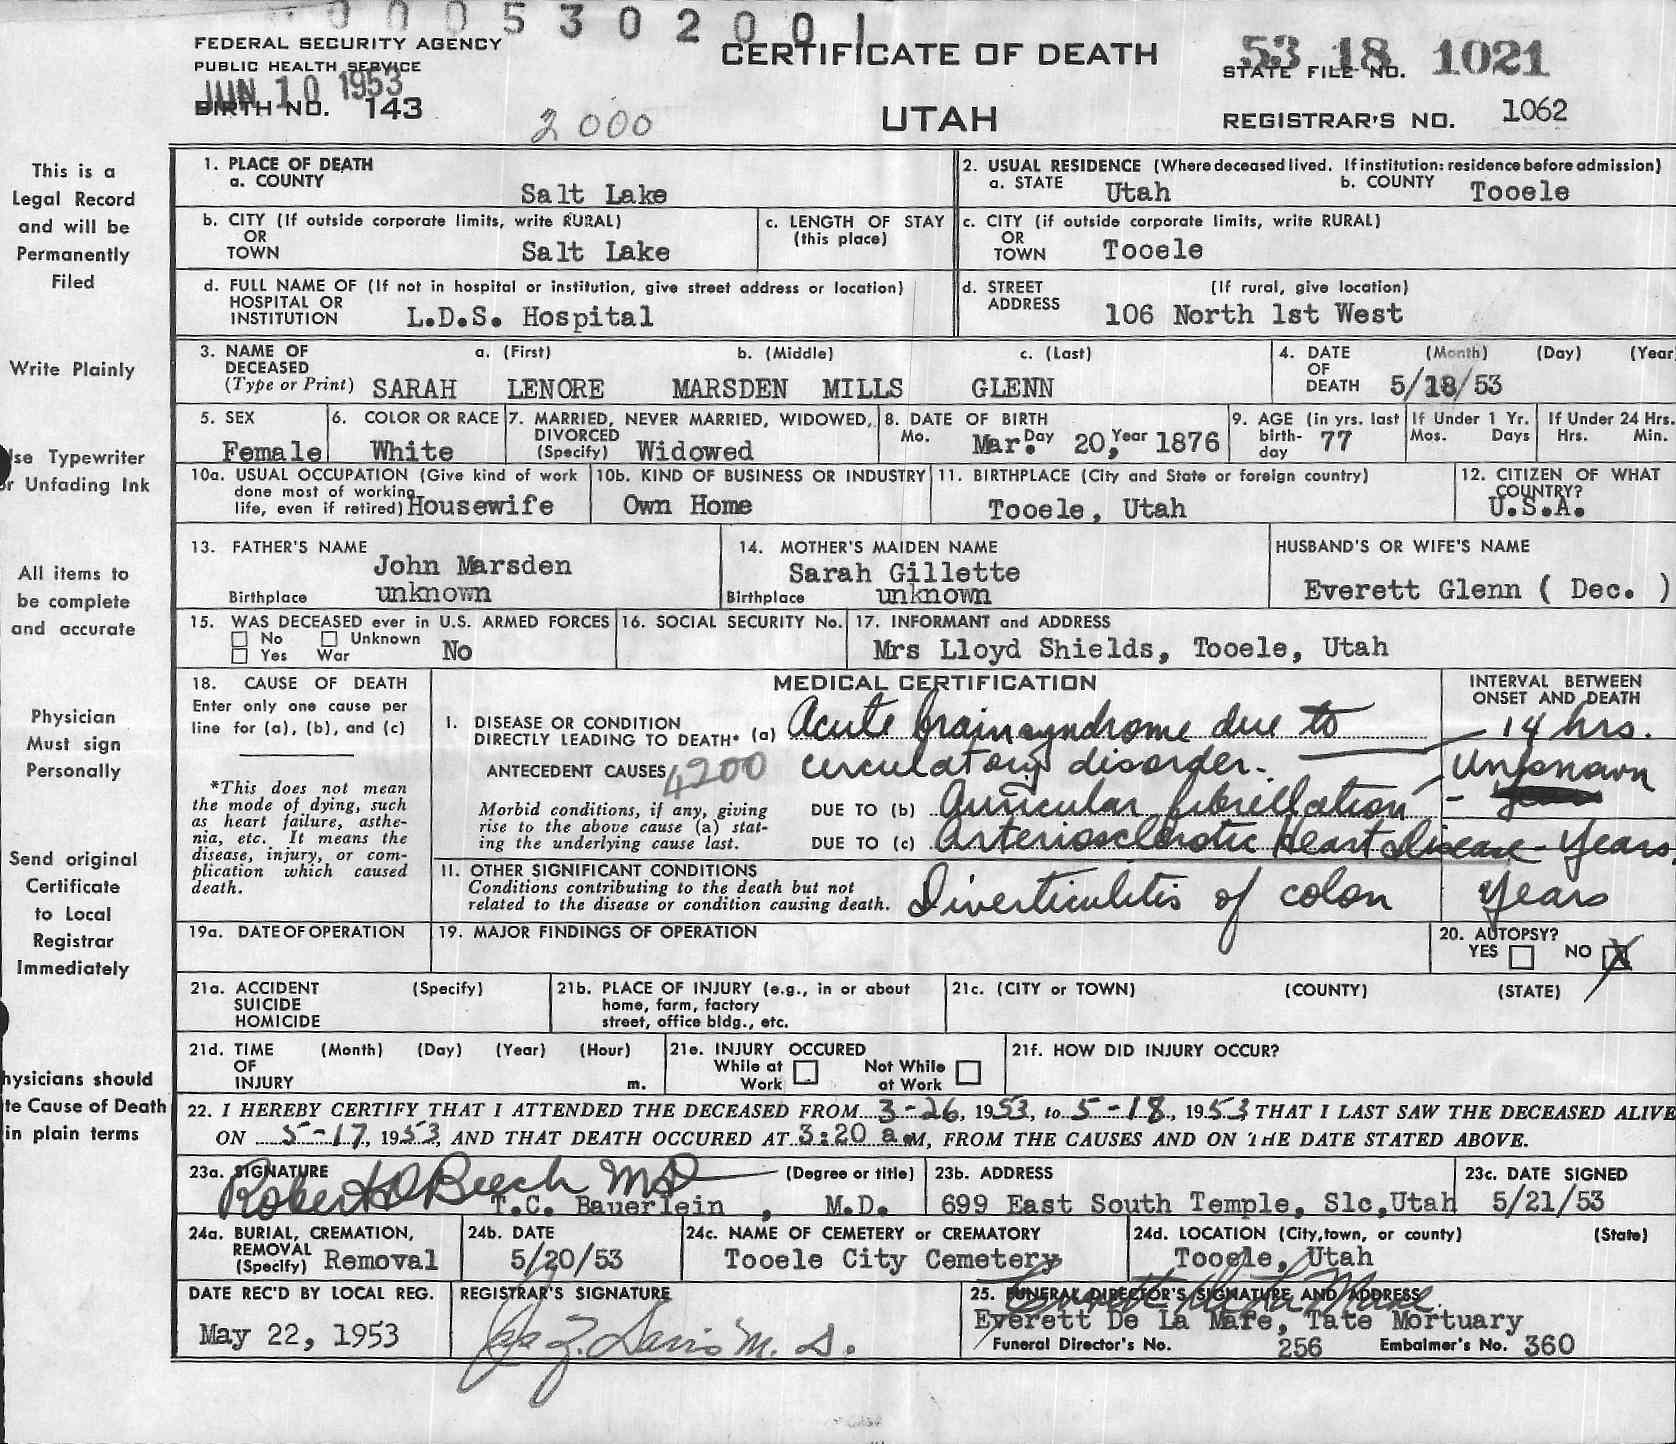 000530200
FEDERAL SECURITY AGENCY
PUBLIC HEALTH SERVICE
JUN 10 1953
BIRTH NO. 143
2000
CERTIFICATE OF DEATH
UTAH
53 18 1021
STATE FILE NO.
REGISTRAR'S NO. 1062
This is a
Legal Record
and will be
Permanently
Filed
Write Plainly
se Typewriter
r Unfading Ink
All items to
be complete
and accurate
Physician
Must sign
Personally
Send original
Certificate
to Local
Registrar
Immediately
hysicians should
te Cause of Death
in plain terms
1. PLACE OF DEATH
a. COUNTY
Salt Lake
2. USUAL RESIDENCE (Where deceased lived. If institution: residence before admission)
a. STATE Utah b. COUNTY Tooele
b. CITY (If outside corporate limits, write RURAL)
OR
TOWN Salt Lake
c. LENGTH OF STAY
(this place)
c. CITY (if outside corporate limits, write RURAL)
OR
TOWN Tooele
d. FULL NAME OF (If not in hospital or institution, give street address or location)
HOSPITAL OR
INSTITUTION L.D.S. Hospital
d. STREET (If rural, give location)
ADDRESS
106 North 1st West
3. NAME OF DECEASED a. (First) b. (Middle) c. (Last)
(Type or Print) SARAH LENORE MARSDEN MILLS GLENN
4. DATE OF DEATH (Month) (Day) (Year
5/18/53
5. SEX
Female
6. COLOR OR RACE
White
7. MARRIED, NEVER MARRIED, WIDOWED,
DIVORCED
(Specify) Widowed
8. DATE OF BIRTH
Mo. Day Year
Mar. 20, 1876
9. AGE (in yrs. last
birth-
day 77
If Under 1 Yr.
Mos. Days
If Under 24 Hrs.
Hrs. Min.
10a. USUAL OCCUPATION (Give kind of work
done most of working
life, even if retired) Housewife
10b. KIND OF BUSINESS OR INDUSTRY
Own Home
11. BIRTHPLACE (City and State or foreign country)
Tooele, Utah
12. CITIZEN OF WHAT
COUNTRY?
U.S.A.
13. FATHER'S NAME
John Marsden
Birthplace unknown
14. MOTHER'S MAIDEN NAME
Sarah Gillette
Birthplace unknown
HUSBAND'S OR WIFE'S NAME
Everett Glenn ( Dec. )
15. WAS DECEASED ever in U.S. ARMED FORCES
No Unknown
Yes War No
16. SOCIAL SECURITY No.
17. INFORMANT and ADDRESS
Mrs Lloyd Shields, Tooele, Utah
18. CAUSE OF DEATH
Enter only one cause per
line for (a), (b), and (c)
*This does not mean
the mode of dying, such
as heart failure, asthe-
nia, etc. It means the
disease, injury, or com-
plication which caused
death.
MEDICAL CERTIFICATION
INTERVAL BETWEEN
ONSET AND DEATH
I. DISEASE OR CONDITION
DIRECTLY LEADING TO DEATH* (a) Acute brain syndrome due to 14 hrs.
ANTECEDENT CAUSES 4200 circulatory disorder. Unknown
Morbid conditions, if any, giving
rise to the above cause (a) stat-
ing the underlying cause last.
DUE TO (b) Auricular fibrillation -
DUE TO (c) Arteriosclerotic Heart Disease - years
II. OTHER SIGNIFICANT CONDITIONS
Conditions contributing to the death but not
related to the disease or condition causing death. Diverticulitis of colon years
19a. DATE OF OPERATION
19. MAJOR FINDINGS OF OPERATION
20. AUTOPSY?
YES NO X
21a. ACCIDENT (Specify)
SUICIDE
HOMICIDE
21b. PLACE OF INJURY (e.g., in or about
home, farm, factory
street, office bldg., etc.
21c. (CITY or TOWN) (COUNTY) (STATE)
21d. TIME (Month) (Day) (Year) (Hour)
OF
INJURY m.
21e. INJURY OCCURED
While at Work Not While at Work
21f. HOW DID INJURY OCCUR?
22. I HEREBY CERTIFY THAT I ATTENDED THE DECEASED FROM 3-26, 1953, to 5-18, 1953 THAT I LAST SAW THE DECEASED ALIVE
ON 5-17, 1953, AND THAT DEATH OCCURED AT 3:20 a.M, FROM THE CAUSES AND ON THE DATE STATED ABOVE.
23a. SIGNATURE (Degree or title)
Robert D Beech MD
T.C. Bauerlein , M.D.
23b. ADDRESS
699 East South Temple, Slc,Utah
23c. DATE SIGNED
5/21/53
24a. BURIAL, CREMATION,
REMOVAL
(Specify) Removal
24b. DATE
5/20/53
24c. NAME OF CEMETERY or CREMATORY
Tooele City Cemetery
24d. LOCATION (City, town, or county) (State)
Tooele, Utah
DATE REC'D BY LOCAL REG.
May 22, 1953
REGISTRAR'S SIGNATURE
25. FUNERAL DIRECTOR'S SIGNATURE AND ADDRESS
Everett De La Mare, Tate Mortuary
Funeral Director's No. 256 Embalmer's No. 360